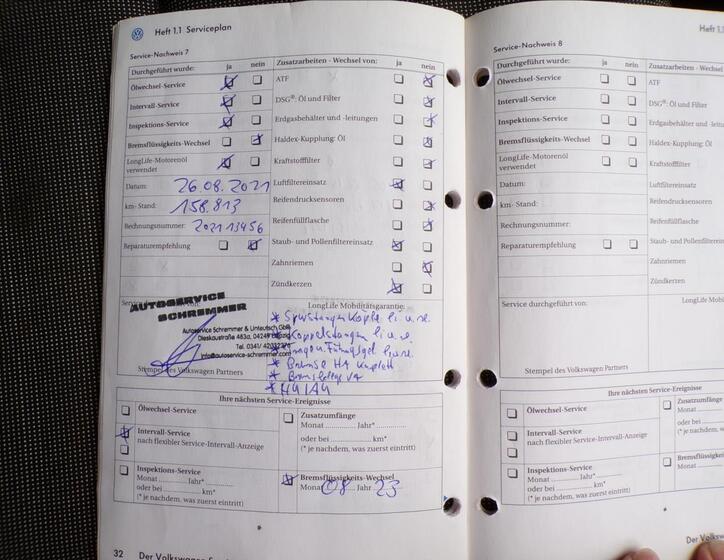 Heft 1.1 Serviceplan
Service-Nachweis 7
Durchgeführt wurde: ja nein
Ölwechsel-Service
Intervall-Service
Inspektions-Service
Bremsflüssigkeits-Wechsel
LongLife-Motorenöl
verwendet
Datum: 26.08.2021
km-Stand: 158.813
Rechnungsnummer: 202113456
Reparaturempfehlung
Zusatzarbeiten - Wechsel von: ja nein
ATF
DSG®: Öl und Filter
Erdgasbehälter und -leitungen
Haldex-Kupplung: Öl
Kraftstofffilter
Luftfiltereinsatz
Reifendrucksensoren
Reifenfüllflasche
Staub- und Pollenfiltereinsatz
Zahnriemen
Zündkerzen
AUTOSERVICE
SCHREMMER
Autoservice Schremmer & Unteutsch GbR
Dieskaustraße 483a, 04249
info@autoservice-schremmer.com
Stempel des Volkswagen Partners
LongLife Mobilitätsgarantie:
* Spurstangenköpfe li u. re
* Koppelstangen li u. re
* HU/AU
Ihre nächsten Service-Ereignisse
Ölwechsel-Service
Intervall-Service
nach flexibler Service-Intervall-Anzeige
Inspektions-Service
Monat ........ Jahr*
oder bei ........ km*
(* je nachdem, was zuerst eintritt)
Zusatzumfänge
Monat ........ Jahr*
oder bei ........ km*
(* je nachdem, was zuerst eintritt)
Bremsflüssigkeits-Wechsel
Monat 08 Jahr 23
32
Heft 1.1
Service-Nachweis 8
Durchgeführt wurde: ja nein
Ölwechsel-Service
Intervall-Service
Inspektions-Service
Bremsflüssigkeits-Wechsel
LongLife-Motorenöl
verwendet
Datum:
km- Stand:
Rechnungsnummer:
Reparaturempfehlung
Zusatzarbeiten - Wechsel von:
ATF
DSG®: Öl und Filter
Erdgasbehälter und -leitu
Haldex-Kupplung: Öl
Kraftstofffilter
Luftfiltereinsatz
Reifendrucksensoren
Reifenfüllflasche
Staub- und Pollenfiltereins
Zahnriemen
Zündkerzen
Service durchgeführt von:
LongLife Mobil
Stempel des Volkswagen Partners
Ihre nächsten Service-Ereignisse
Ölwechsel-Service
Intervall-Service
nach flexibler Service-Intervall-Anzeige
Inspektions-Service
Monat ........ Jahr*
oder bei ........ km*
(* je nachdem, was zuerst eintritt)
Zusatzumfänge
Monat
oder bei
(* je nachdem, was
Bremsflüssigkeits-W
Monat